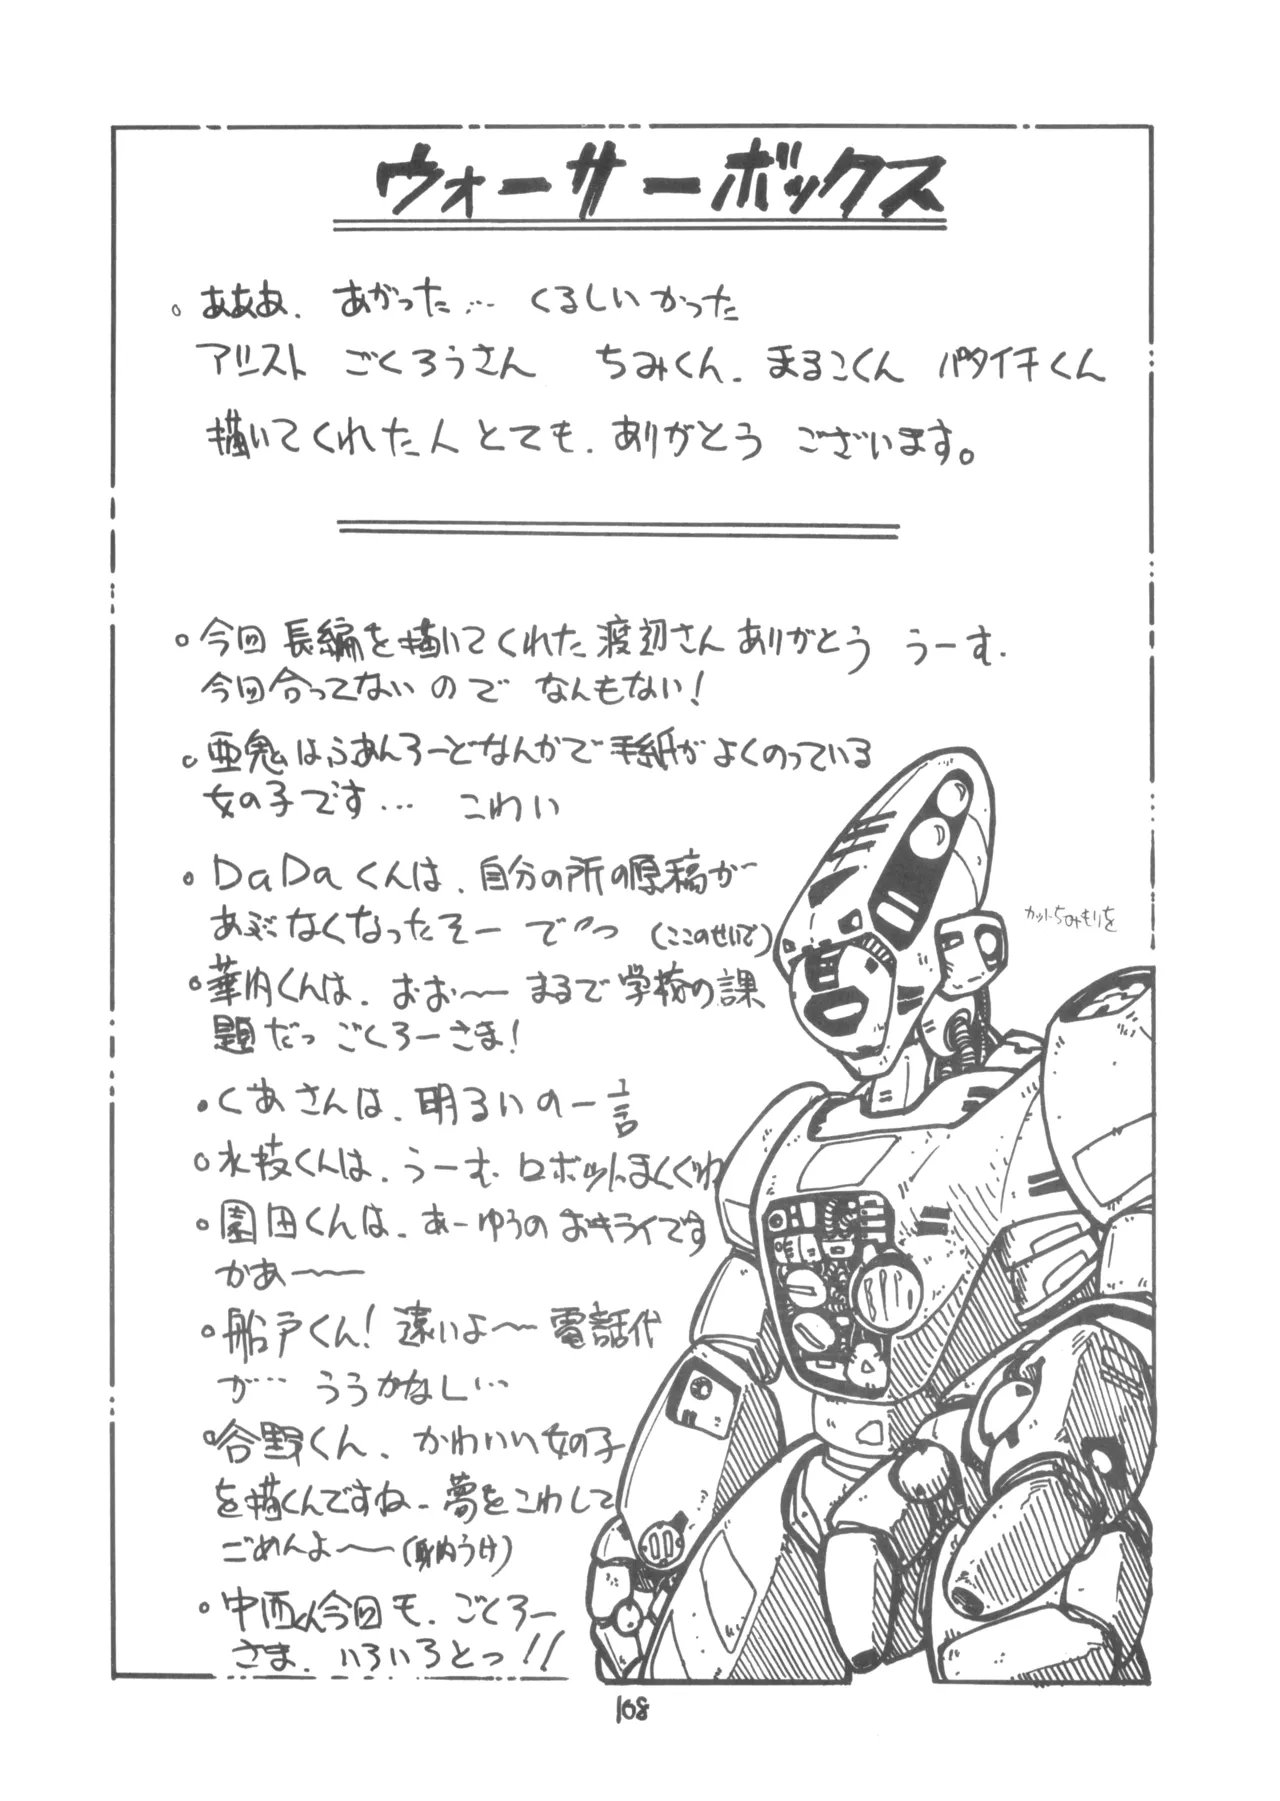 ウォーサーボックス
。あああ、あがった… くるしいかった
アシスト ごくろうさん ちみくん、まるこくん バタイチくん
描いてくれた人とても、ありがとう ございます。
。今回長編を描いてくれた渡辺さんありがとう うーす、
今回合ってないので なんもない!
。亜鬼はふぁんろーどなんかで手紙がよくのっている
女の子です… こわい
。DaDaくんは、自分の所の原稿が
あぶなくなったそー で〜っ (ここのせいで)
。華内くんは、おお〜 まるで学校の課
題だっ ごくろーさま!
。くあさんは、明るいの一言
。水枝くんは、うーむ ロボットまくぐわ
。園田くんは、あーゆうのおキライです
かあ〜
。船戸くん! 遠いよ〜 電話代
が… ううかなし…
。合野くん、かわいい女の子
を描くんですね、夢をこわして
ごめんよ〜 (身内うけ)
。中西くん今回も、ごくろー
さま、いろいろとっ!!
カットちみもりを
108